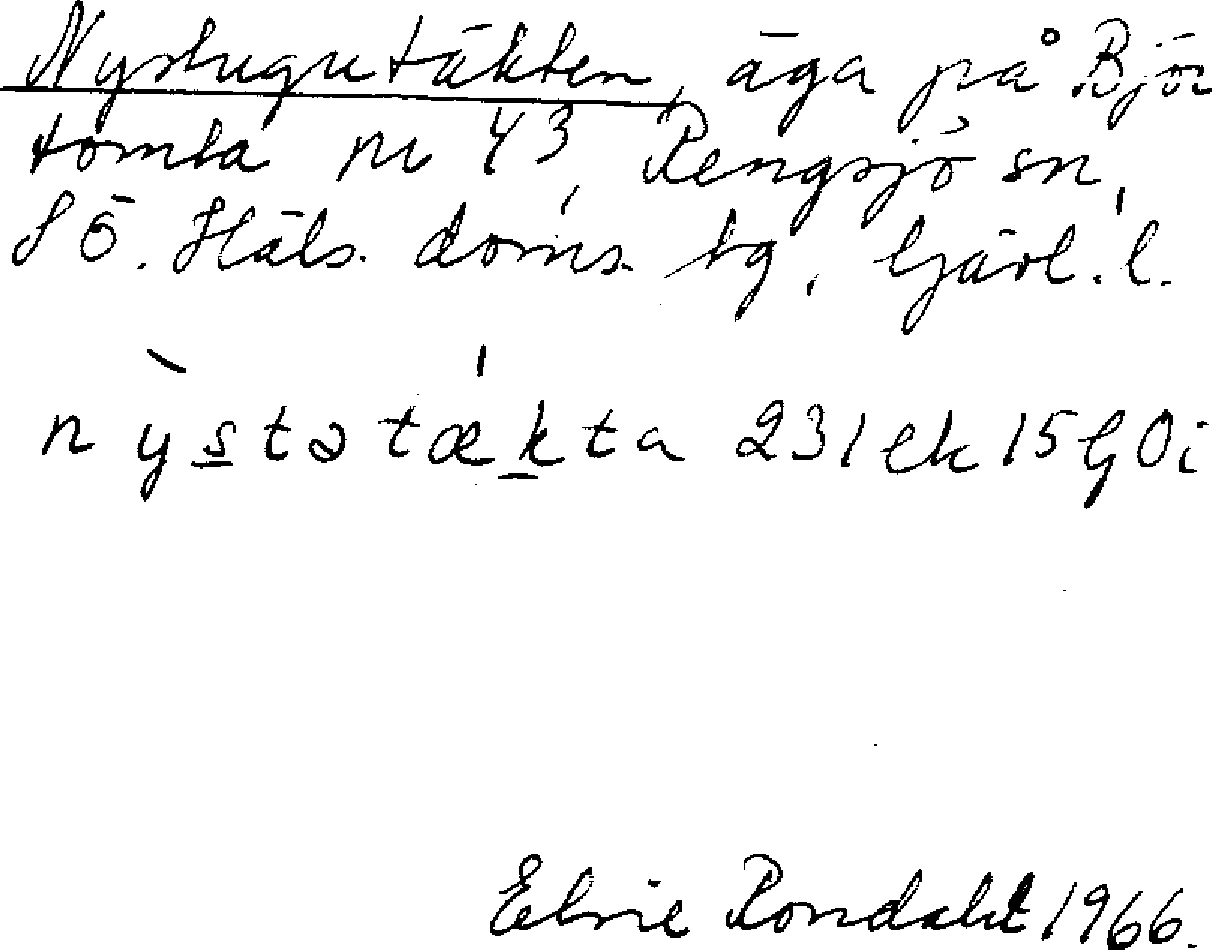 Nystugutäkten, äga på Björ
tomta nr 43, Rengsjö sn,
SÖ. Häls. doms. tg, Gävl. l.
nỳstətǽkta 231 ek 15G0i
Elvie Rondahl 1966.